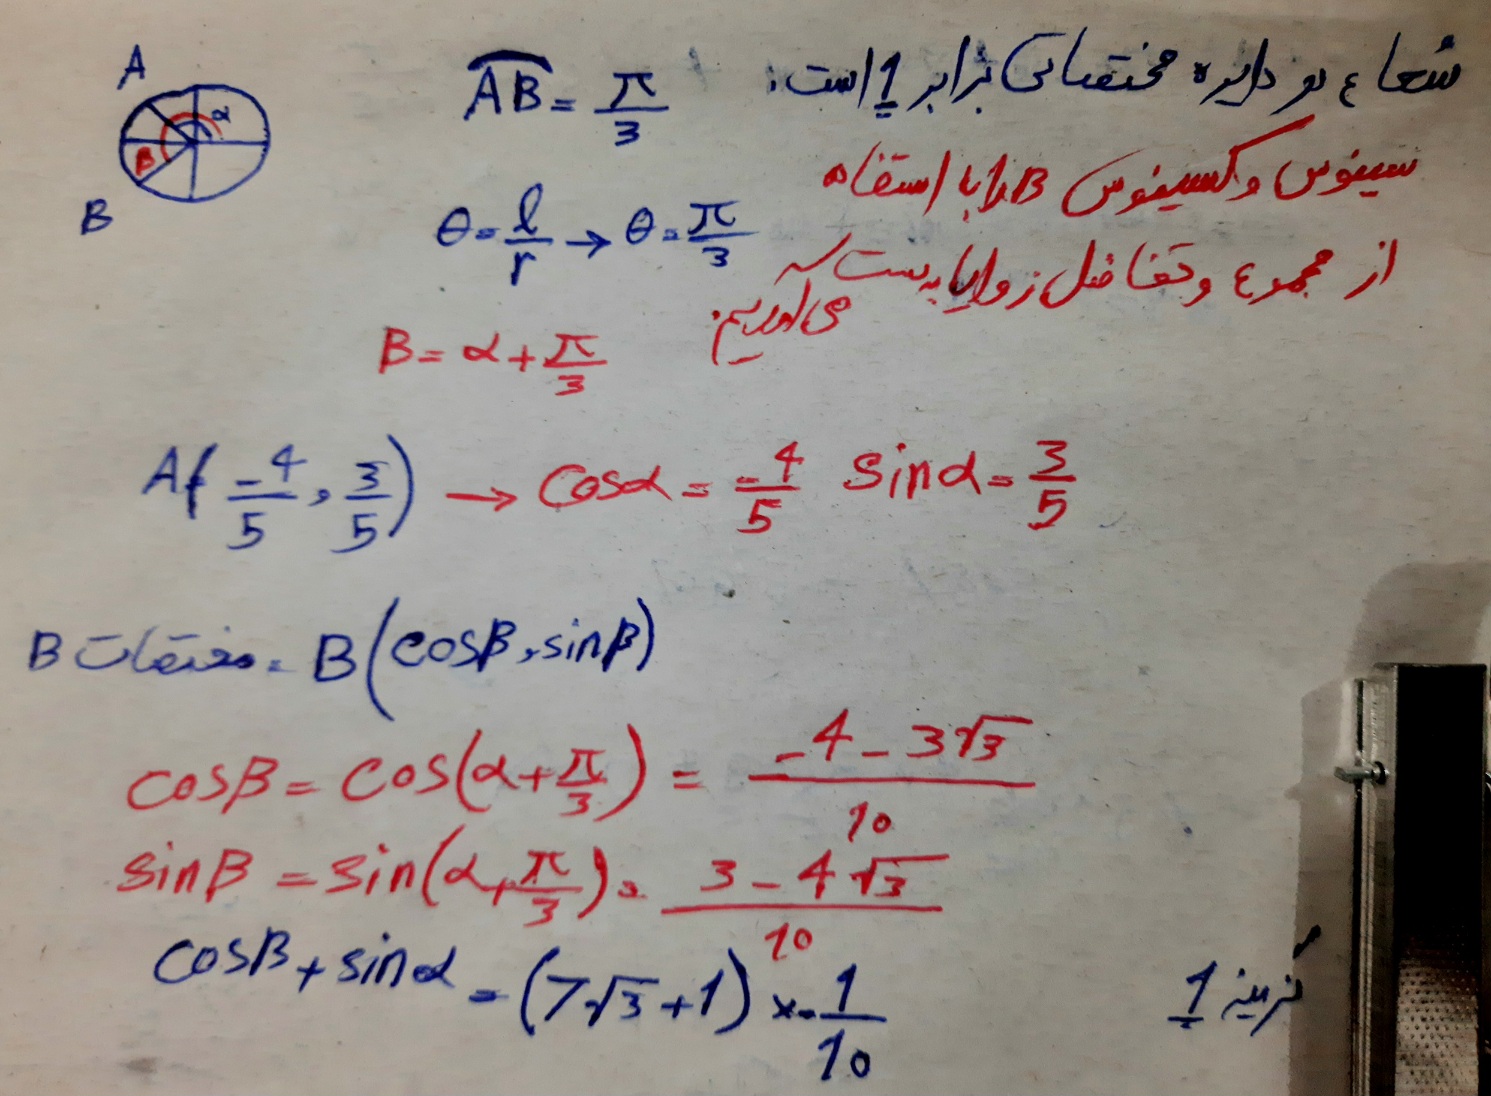 شعاع در دایره مختصاتی برابر 1 است.
A
α
B
B
AB = π/3
سینوس و کسینوس B را با استفاده
θ = l/r → θ = π/3
از مجموع و تفاضل زوایا بدست
می‌آوریم.
B = α + π/3
A(-4/5, 3/5) → cosα = -4/5 sinα = 3/5
مختصات B = B(cosβ, sinβ)
cosβ = cos(α + π/3) = (-4 - 3√3)/10
sinβ = sin(α + π/3) = (3 - 4√3)/10
cosβ + sinα = (7√3 + 1) × -1/10
گزینه 1